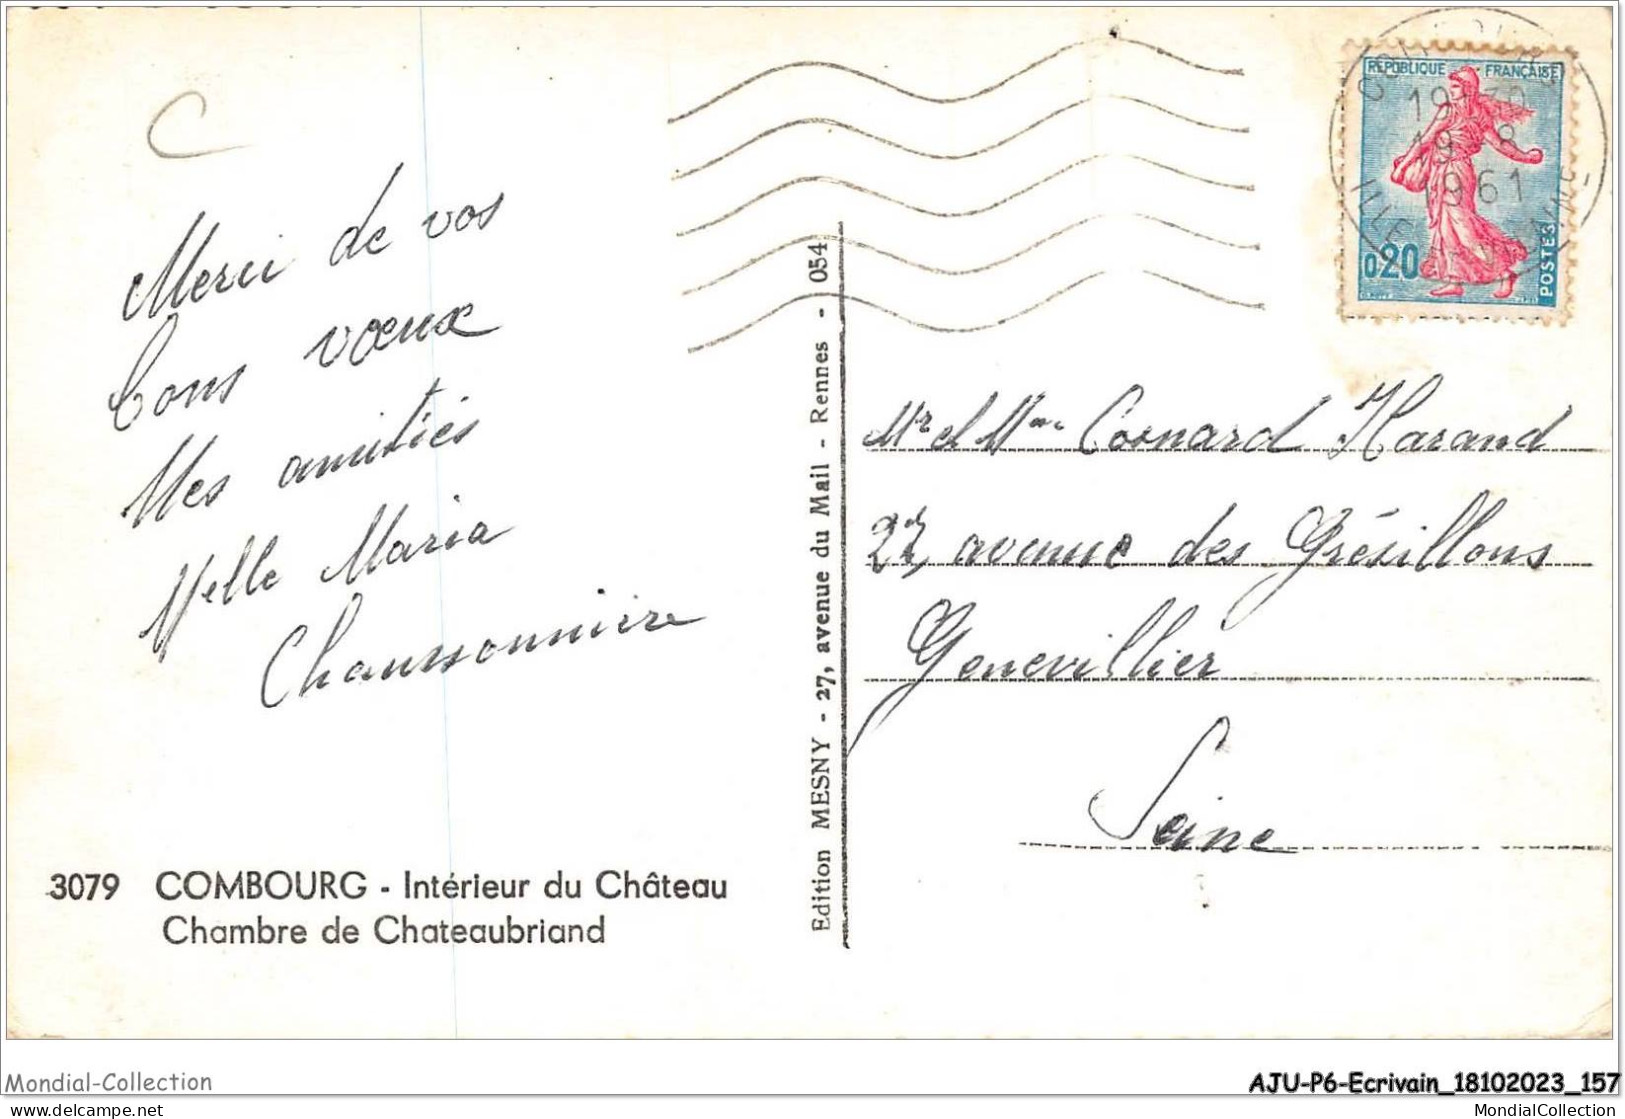 Merci de vos
bons vœux
Mes amitiés
Melle Maria
Chaussonnière
3079 COMBOURG - Intérieur du Château
Chambre de Chateaubriand
Edition MESNY - 27, avenue du Mail - Rennes - 054
RÉPUBLIQUE FRANÇAISE
0,20
POSTES
19 8
1961
ILLE
Mr et Mme Cornard Harand
avenue des Grésillons
Genevillier
Seine
Mondial-Collection
AJU-P6-Ecrivain_18102023_157
delcampe.net
MondialCollection